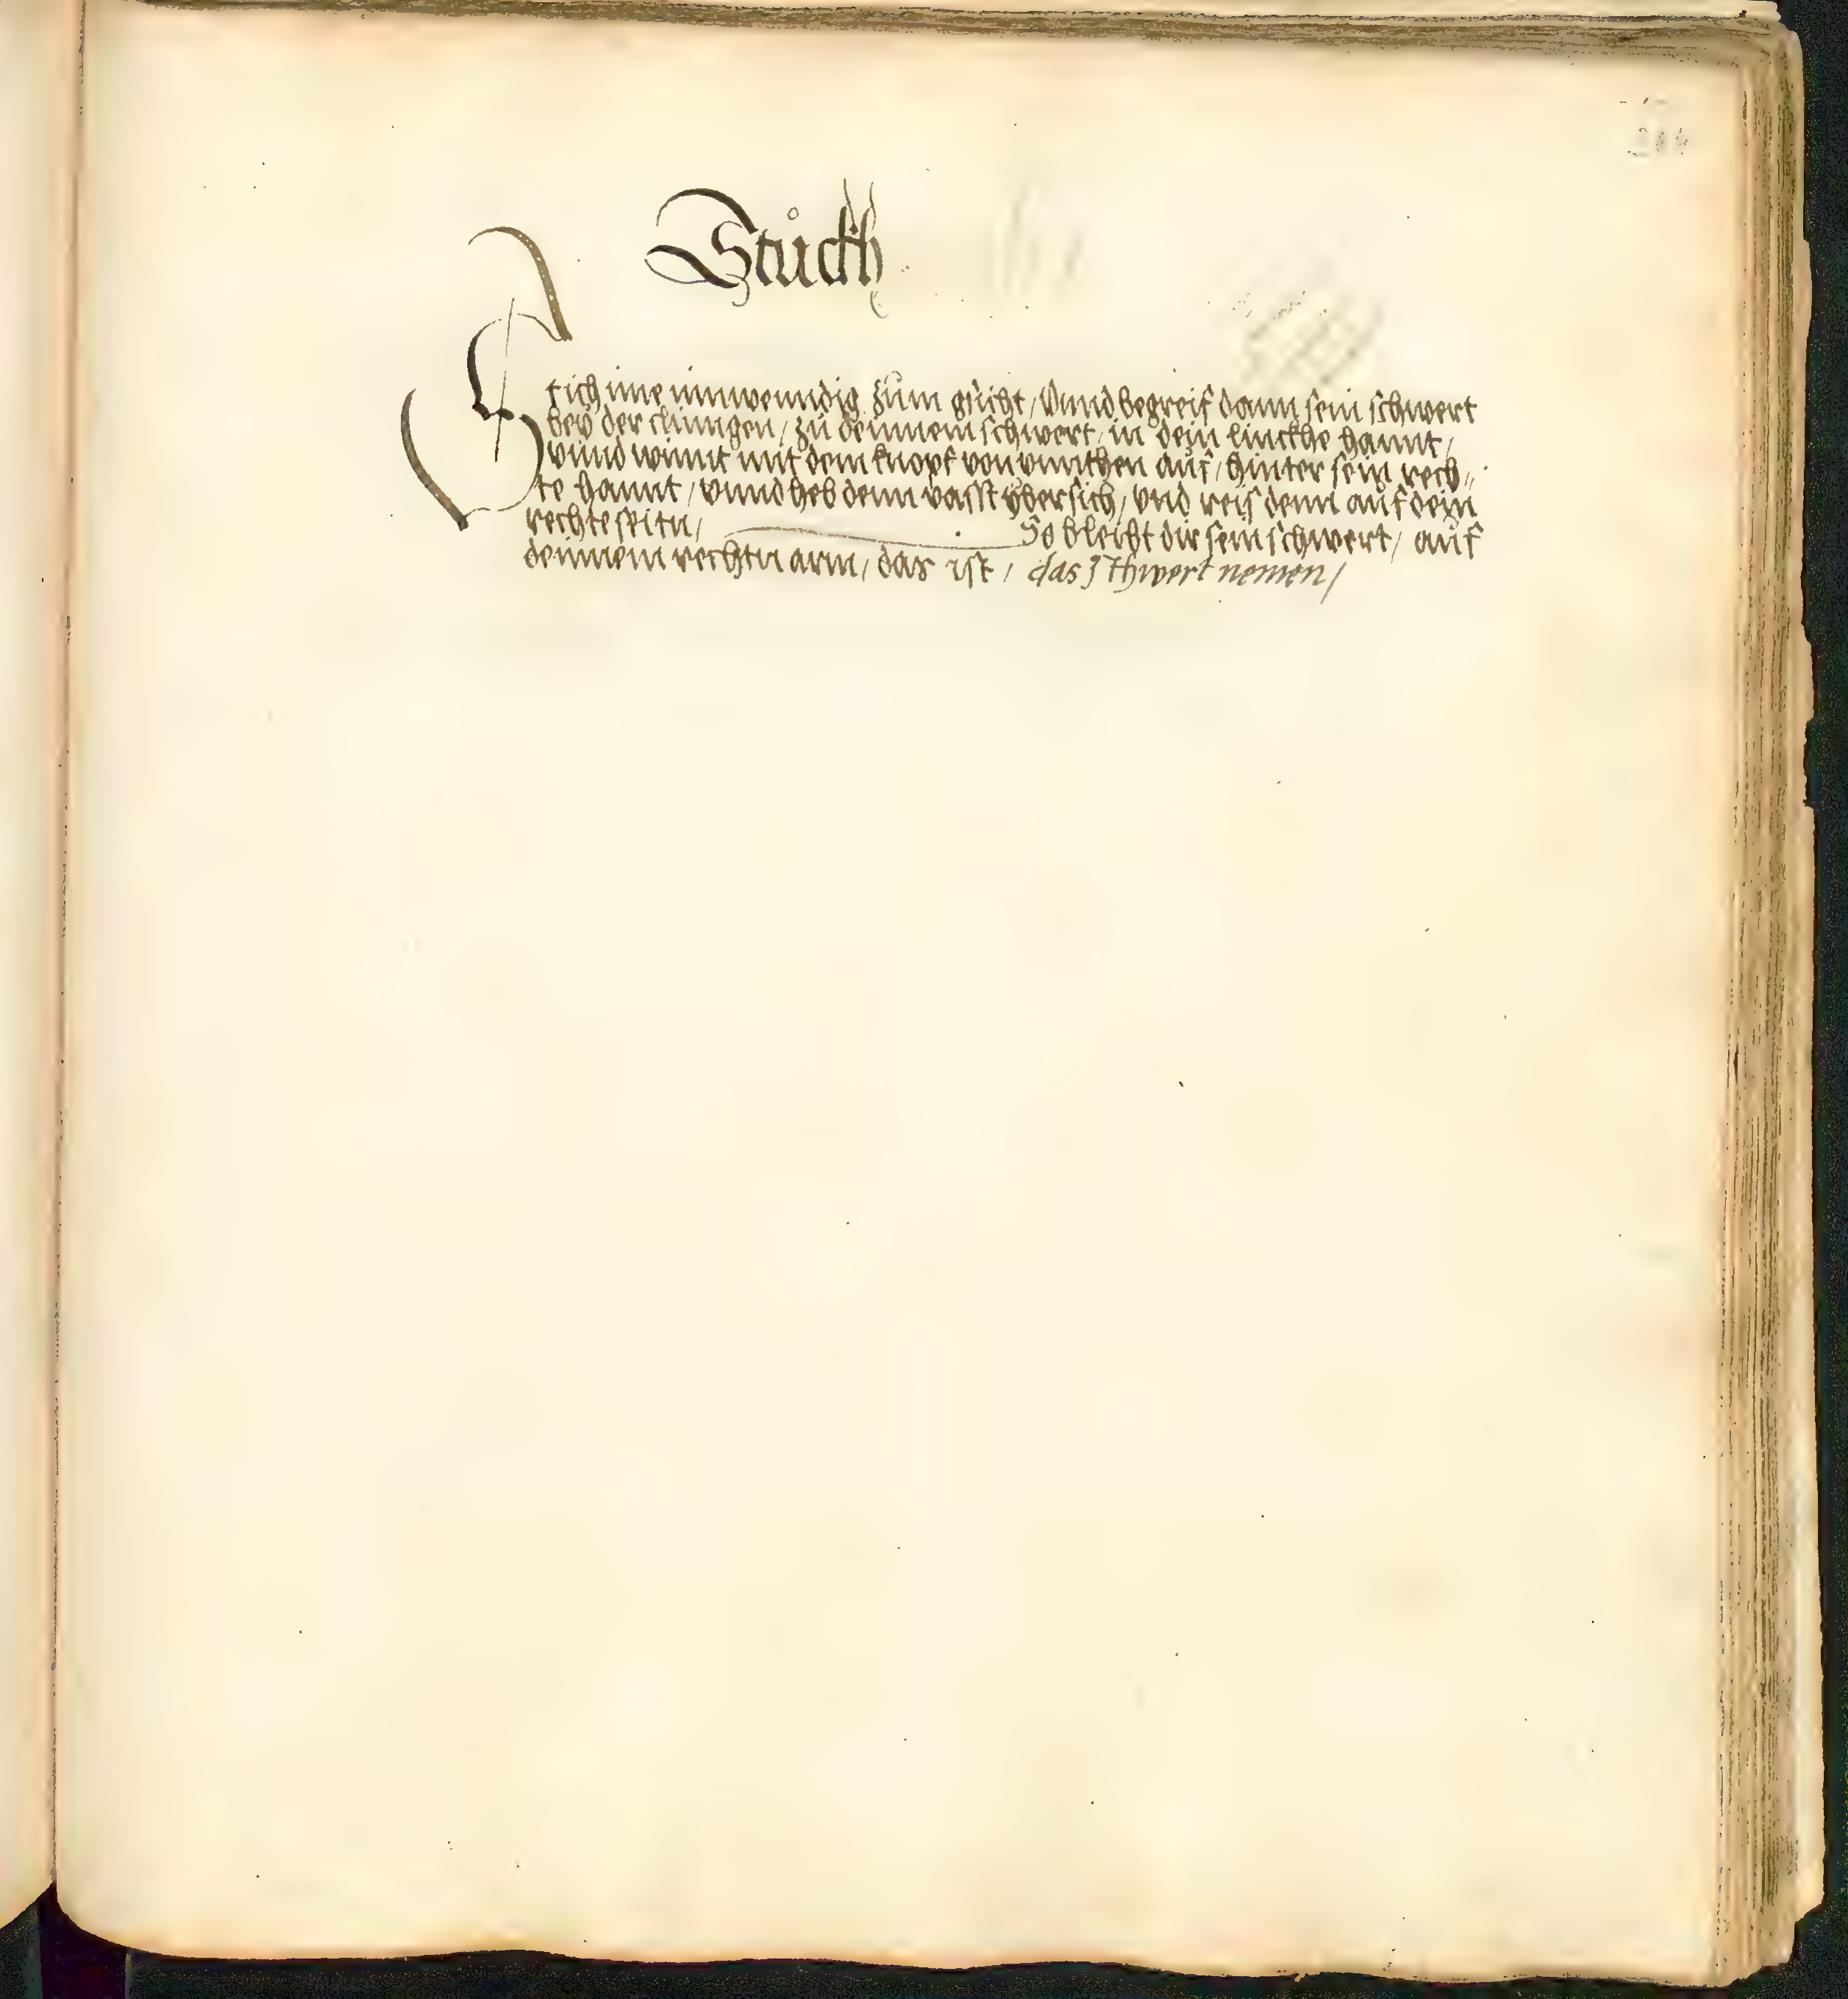 Stückh
Stich ime innwenndig zům gsicht / Vnnd begreif dann sein schwert
beÿ der clinngen / zů deinnem schwert / in dein linckhe hannt /
vnnd winnt mit dem knopf von vnnthen aůf / hinter sein rech„
te hannt / vnnd heb denn vasst ÿbersich / vnd reis denn aůf dein
rechte seitn /                So bleibt dir sein schwert / aůf
deinnem rechtn arm / das ist / das schwert nemen /